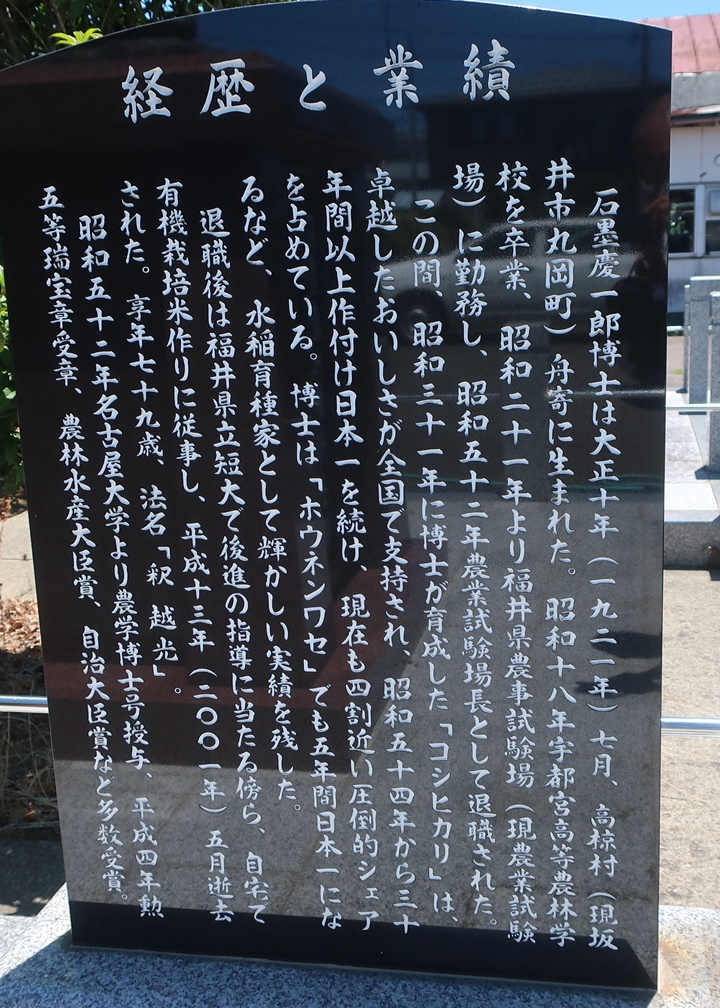 経歴と業績
石墨慶一郎博士は大正十年（一九二一年）七月、高椋村（現坂
井市丸岡町）舟寄に生まれた。昭和十八年宇都宮高等農林学
校を卒業、昭和二十一年より福井県農事試験場（現農業試験
場）に勤務し、昭和五十二年農業試験場長として退職された。
この間、昭和三十一年に博士が育成した「コシヒカリ」は、
卓越したおいしさが全国で支持され、昭和五十四年から三十
年間以上作付け日本一を続け、現在も四割近い圧倒的シェア
を占めている。博士は「ホウネンワセ」でも五年間日本一にな
るなど、水稲育種家として輝かしい実績を残した。
退職後は福井県立短大で後進の指導に当たる傍ら、自宅て
有機栽培米作りに従事し、平成十三年（二〇〇一年）五月逝去
された。享年七十九歳、法名「釈 越光」。
昭和五十二年名古屋大学より農学博士号授与、平成四年勲
五等瑞宝章受章、農林水産大臣賞、自治大臣賞など多数受賞。